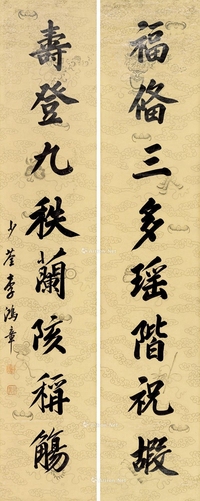 福備三多瑤階祝嘏
壽登九秩蘭陔稱觴
少荃李鴻章